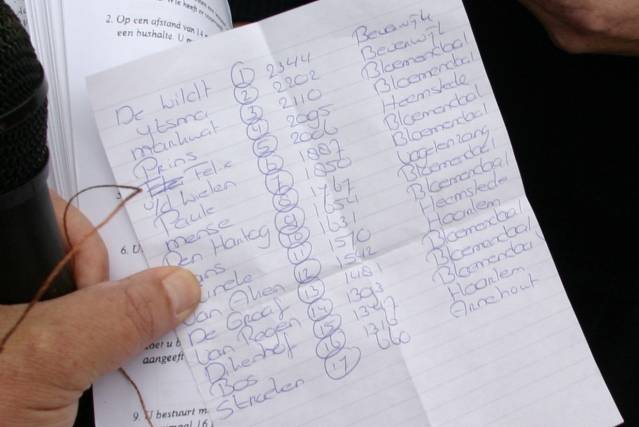 2. Op een afstand van 14
een bushalte. U m
6. U
aangeeft
9. U bestuurt m
De Wildt 1 2344 Beverwijk
Ytsma 2 2202 Beverwijk
Markwat 3 2110 Bloemendaal
Prins 4 2095 Bloemendaal
Felix 5 2006 Heemstede
v/d Wielen 6 1887 Bloemendaal
Paule 7 1850 Bloemendaal
Mense 8 1767 Vogelenzang
Den Hartog 9 1654 Bloemendaal
ans 10 1631 Bloemendaal
11 1570 Heemstede
Van Aken 12 1542 Haarlem
De Graaf 13 1481 Bloemendaal
Van Rogen 14 1393 Bloemendaal
Dikenhof 15 1347 Bloemendaal
Bos 16 1316 Haarlem
17 660